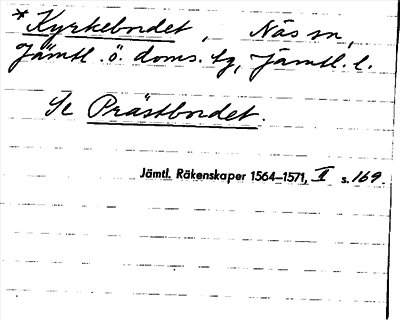 *Kyrkebordet, Näs sn,
Jämtl. ö. doms. tg, Jämtl. l.
Se Prästbordet.
Jämtl. Räkenskaper 1564–1571, II s. 169.